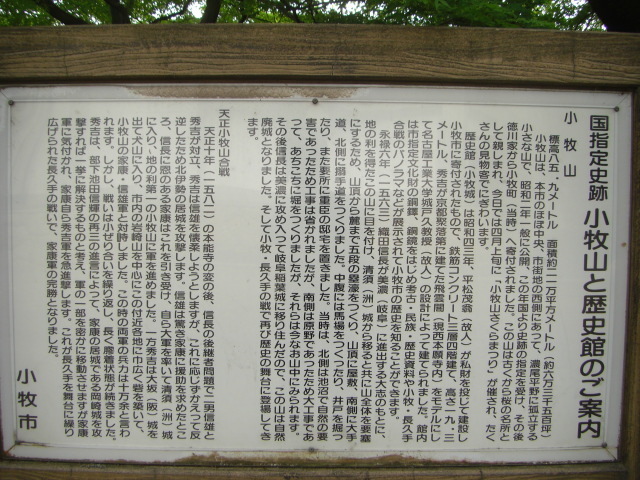 国指定史跡 小牧山と歴史館のご案内
小牧山
標高八五．九メートル 面積約二一万平方メートル（約六万三千五百坪）
小牧山は、本市のほぼ中央、市街地の西側にあって、濃尾平野に孤立する
小さな山で、昭和二年一般に公開、この年国より史跡の指定を受け、その後
徳川家から小牧町（当時）へ寄付されました。この山は古くから桜の名所と
して親しまれ、今日では四月上旬に「小牧山さくらまつり」が催され、たく
さんの見物客でにぎわいます。
歴史館（小牧城）は昭和四三年、平松茂翁（故人）が私財を投じて建設し
小牧市に寄付されたもので、鉄筋コンクリート三層四階建て、高さ一九．三
メートル、秀吉が京都聚落第に建てた飛雲閣（現西本願寺内）をモデルにし
て名古屋工業大学城戸久教授（故人）の設計によって建てられました。館内
は市指定文化財の銅鐸、銅鏡をはじめ考古・民族・歴史資料や小牧・長久手
合戦のパノラマなどが展示されて小牧市の歴史を知ることができます。
永禄六年（一五六三）織田信長が美濃（岐阜）に進出する大志のもとに、
地の利を得たこの山に目を付け、清須（洲）城から移ると共に山全体を要塞
にするため、山頂から麓まで五段の壕をつくり、山頂に屋敷、南側に大手
道、北側に搦手道をつくりました。中腹には馬場をつくったり、井戸を掘っ
たり、また要所に重臣の邸宅を置きました。当時は、北側は池沼で自然の要
害であったため工事は省かれましたが、南側は原野であったため大工事であ
って、あちこちに堀をつくりましたが、それらは今なお山中に見られます。
その後信長は美濃に攻め入って岐阜稲葉城に移り住んだので、この山は自然
廃城となりました。そして小牧・長久手の戦で再び歴史の舞台に登場してき
ます。
天正小牧山合戦
天正十年（一五八二）の本能寺の変の後、信長の後継者問題で二男信雄と
秀吉が対立。秀吉は信雄を懐柔しようとしますが、これに応じずかえって反
逆したため北伊勢の居城を攻撃します。信雄は驚き家康に援助を求めたとこ
ろ、信長に恩のある家康はこれを引き受け、自ら大軍を率いて清須（洲）城
に入り、地の利第一の小牧山に軍を進めました。一方秀吉は大坂（阪）城を
出て犬山に入り、市内の岩崎山を中心にこの付近各地に何十か砦を築いて、
小牧山の家康・信雄軍と対峙しました。この時の両軍の兵力は十万余と言わ
れます。しかし、戦いは小ぜり合いを繰り返し、長く膠着状態が続きました。
秀吉は、部下池田信輝の再三の進言によって、家康の居城である岡崎城を攻
撃すれば一挙に解決するものと考え、軍の一部を密かに移動させますが家康
軍に気付かれ、家康自ら秀吉軍を急進撃します。これが長久手を舞台に繰り
広げられた長久手の戦いで、家康軍の完勝となりました。
小牧市